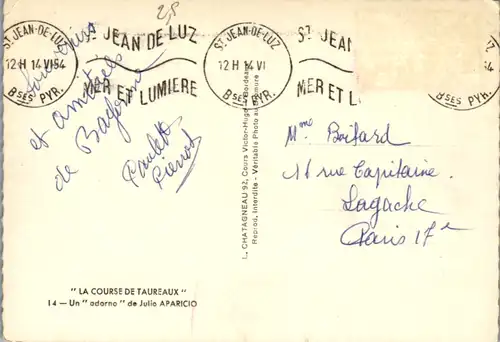 28
ST JEAN-DE-LUZ
12 H 14 VI 54
BSES PYR.
ST JEAN DE LUZ
MER ET LUMIERE
ST JEAN-DE-LUZ
12 H 14 VI
BSES PYR.
ST JEAN
MER ET L
54
BSES PYR.
Souvenirs
et amitiés
de Bayonne
Paulette
Pierrot
L. CHATAGNEAU 92, Cours Victor-Hugo - Bordeaux
Reprod. Interdite - Véritable Photo au Bromure
Mme Boifard
11 rue Capitaine
Lagache
Paris 17e
" LA COURSE DE TAUREAUX "
14 — Un " adorno " de Julio APARICIO